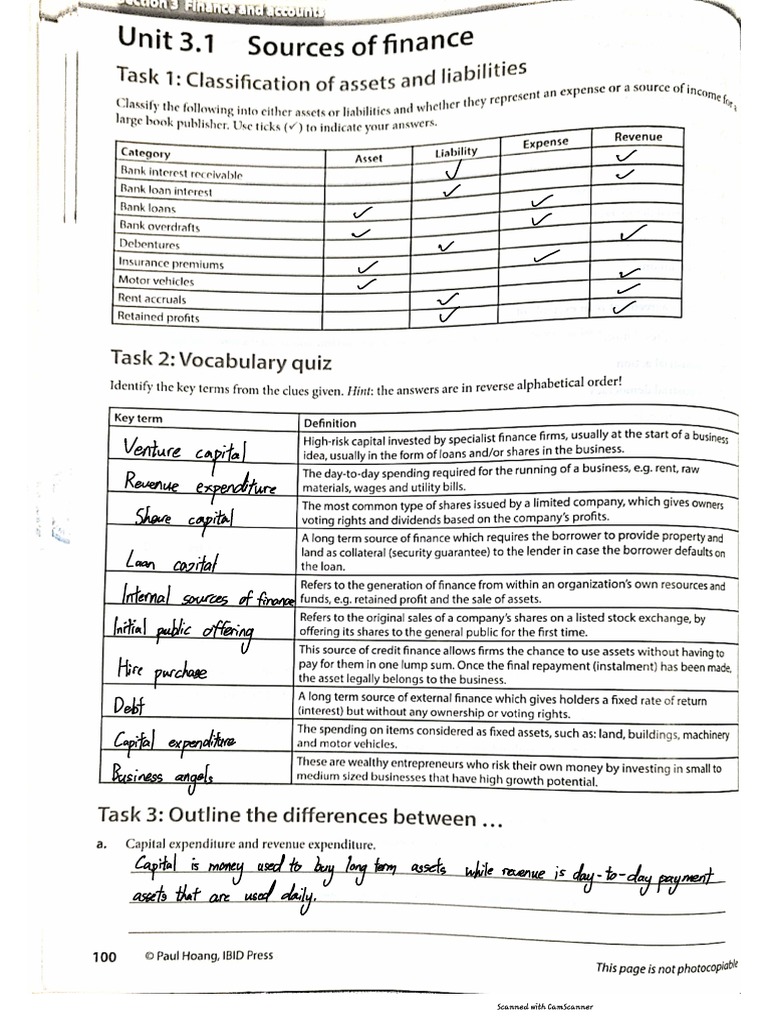 Section 3 Finance and accounts
Unit 3.1 Sources of finance
Task 1: Classification of assets and liabilities
Classify the following into either assets or liabilities and whether they represent an expense or a source of income for a
large book publisher. Use ticks (✓) to indicate your answers.
Category Asset Liability Expense Revenue
Bank interest receivable ✓ ✓
Bank loan interest ✓ ✓
Bank loans ✓ ✓
Bank overdrafts ✓ ✓
Debentures ✓ ✓
Insurance premiums ✓ ✓
Motor vehicles ✓ ✓
Rent accruals ✓ ✓
Retained profits ✓ ✓
Task 2: Vocabulary quiz
Identify the key terms from the clues given. Hint: the answers are in reverse alphabetical order!
Key term Definition
Venture capital
High-risk capital invested by specialist finance firms, usually at the start of a business
idea, usually in the form of loans and/or shares in the business.
Revenue expenditure
The day-to-day spending required for the running of a business, e.g. rent, raw
materials, wages and utility bills.
Share capital
The most common type of shares issued by a limited company, which gives owners
voting rights and dividends based on the company's profits.
Loan capital
A long term source of finance which requires the borrower to provide property and
land as collateral (security guarantee) to the lender in case the borrower defaults on
the loan.
Internal sources of finance
Refers to the generation of finance from within an organization's own resources and
funds, e.g. retained profit and the sale of assets.
Initial public offering
Refers to the original sales of a company's shares on a listed stock exchange, by
offering its shares to the general public for the first time.
Hire purchase
This source of credit finance allows firms the chance to use assets without having to
pay for them in one lump sum. Once the final repayment (instalment) has been made,
the asset legally belongs to the business.
Debt
A long term source of external finance which gives holders a fixed rate of return
(interest) but without any ownership or voting rights.
Capital expenditure
The spending on items considered as fixed assets, such as: land, buildings, machinery
and motor vehicles.
Business angels
These are wealthy entrepreneurs who risk their own money by investing in small to
medium sized businesses that have high growth potential.
Task 3: Outline the differences between ...
a. Capital expenditure and revenue expenditure.
Capital is money used to buy long term assets while revenue is day-to-day payment
assets that are used daily.
100 © Paul Hoang, IBID Press
This page is not photocopiable
Scanned with CamScanner